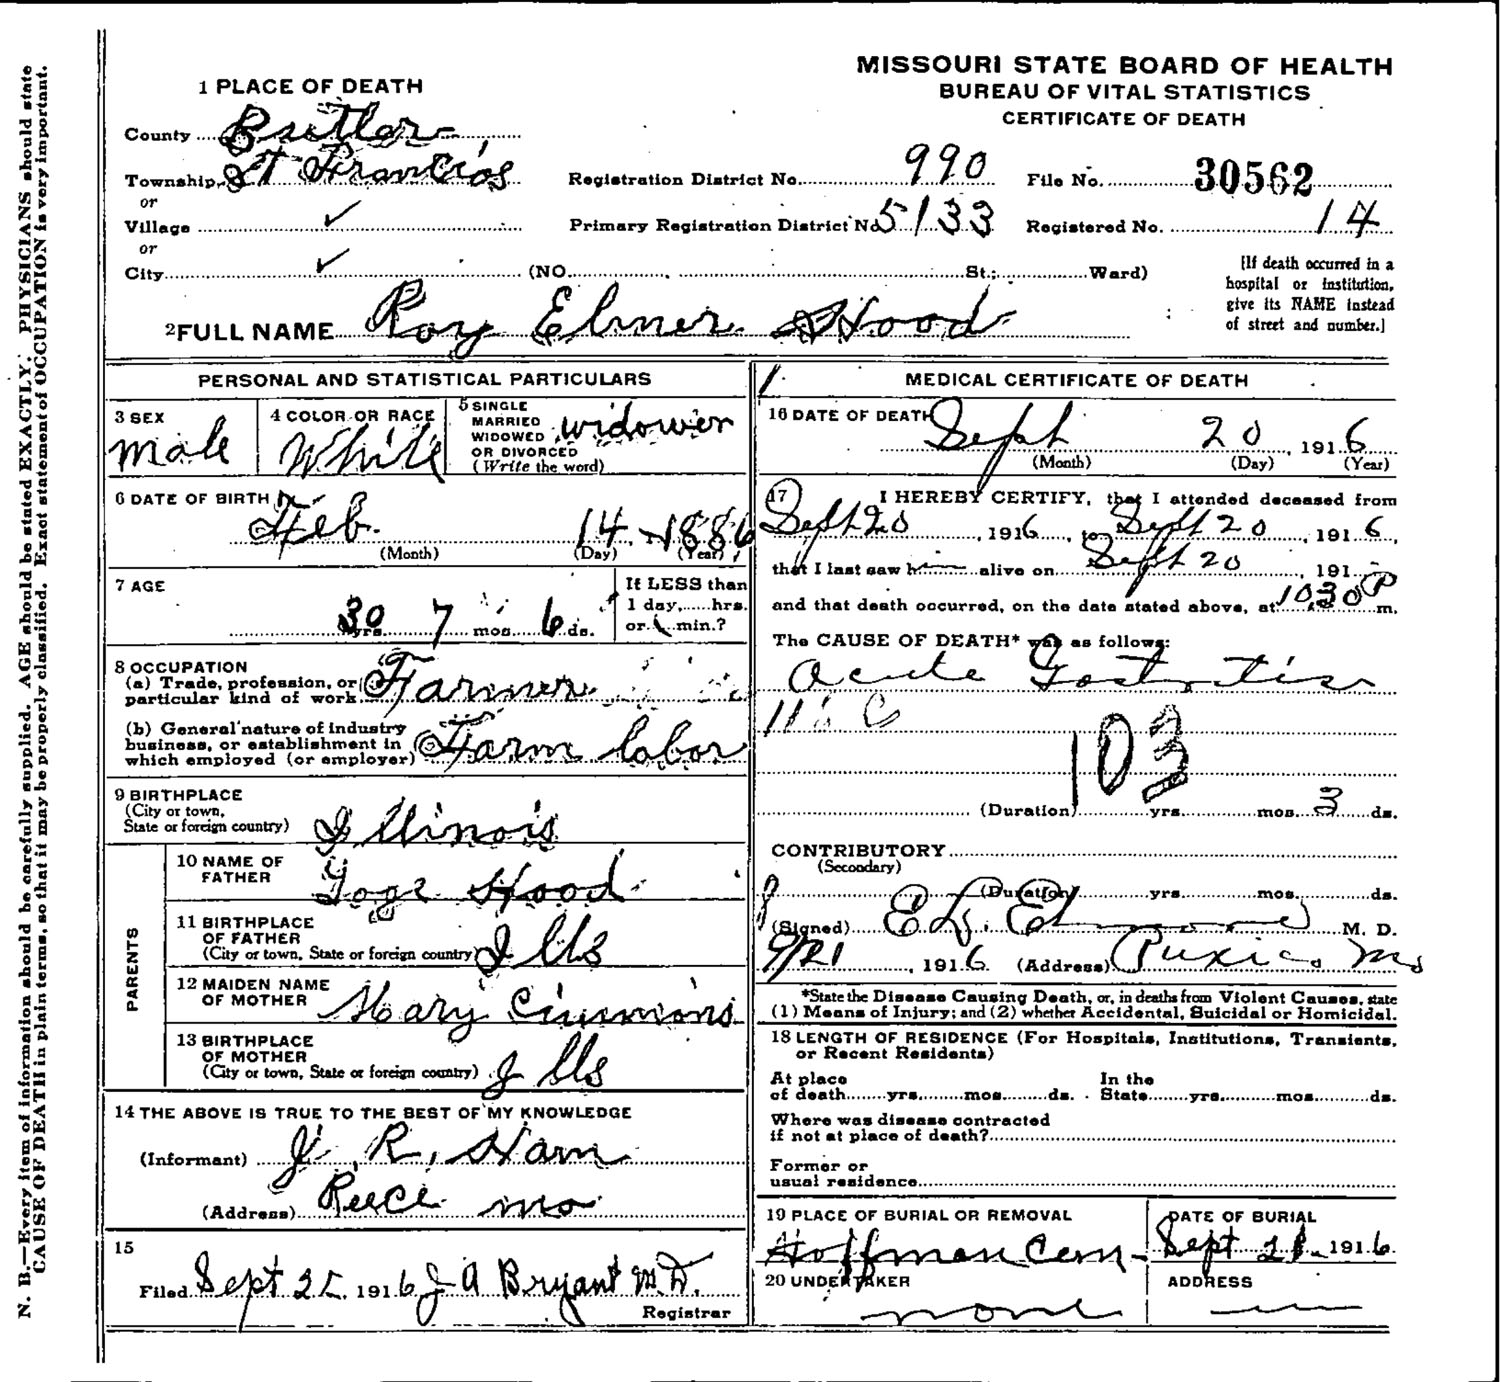 MISSOURI STATE BOARD OF HEALTH
BUREAU OF VITAL STATISTICS
CERTIFICATE OF DEATH
1 PLACE OF DEATH
County Butler
Township St Francios
or
Village ✓
or
City ✓ (NO. St.; Ward)
Registration District No. 990
File No. 30562
Primary Registration District No. 5133
Registered No. 14
[If death occurred in a
hospital or institution,
give its NAME instead
of street and number.]
2 FULL NAME Roy Elmer Hood
PERSONAL AND STATISTICAL PARTICULARS
3 SEX
male
4 COLOR OR RACE
White
5 SINGLE
MARRIED
WIDOWED
OR DIVORCED
(Write the word)
widower
6 DATE OF BIRTH
Feb. 14, 1886
(Month) (Day) (Year)
7 AGE
30 yrs. 7 mos. 6 ds.
If LESS than
1 day, hrs.
or min.?
8 OCCUPATION
(a) Trade, profession, or
particular kind of work Farmer
(b) General nature of industry
business, or establishment in
which employed (or employer) Farm labor
9 BIRTHPLACE
(City or town,
State or foreign country) Illinois
PARENTS
10 NAME OF
FATHER
Hood
11 BIRTHPLACE
OF FATHER
(City or town, State or foreign country) Ills
12 MAIDEN NAME
OF MOTHER
Mary
13 BIRTHPLACE
OF MOTHER
(City or town, State or foreign country) Ills
14 THE ABOVE IS TRUE TO THE BEST OF MY KNOWLEDGE
(Informant) J. R. Ham
(Address) Reece mo
15
Filed Sept 25, 1916 J A Bryant M D.
Registrar
MEDICAL CERTIFICATE OF DEATH
16 DATE OF DEATH
Sept 20, 1916
(Month) (Day) (Year)
17 I HEREBY CERTIFY, that I attended deceased from
Sept 20, 1916, to Sept 20, 1916,
that I last saw him alive on Sept 20, 191
and that death occurred, on the date stated above, at 1030 P m.
The CAUSE OF DEATH* was as follows:
Acute Gastritis
103
(Duration) yrs. mos. 3 ds.
CONTRIBUTORY
(Secondary)
(Duration) yrs. mos. ds.
(Signed) E. M. D.
9/21, 1916 (Address) Puxico Mo
*State the Disease Causing Death, or, in deaths from Violent Causes, state
(1) Means of Injury; and (2) whether Accidental, Suicidal or Homicidal.
18 LENGTH OF RESIDENCE (For Hospitals, Institutions, Transients,
or Recent Residents)
At place
of death yrs. mos. ds.
In the
State yrs. mos. ds.
Where was disease contracted
if not at place of death?
Former or
usual residence
19 PLACE OF BURIAL OR REMOVAL
Hoffman Cem
DATE OF BURIAL
Sept 21, 1916
20 UNDERTAKER
none
ADDRESS
N. B.—Every item of information should be carefully supplied. AGE should be stated EXACTLY. PHYSICIANS should state
CAUSE OF DEATH in plain terms, so that it may be properly classified. Exact statement of OCCUPATION is very important.